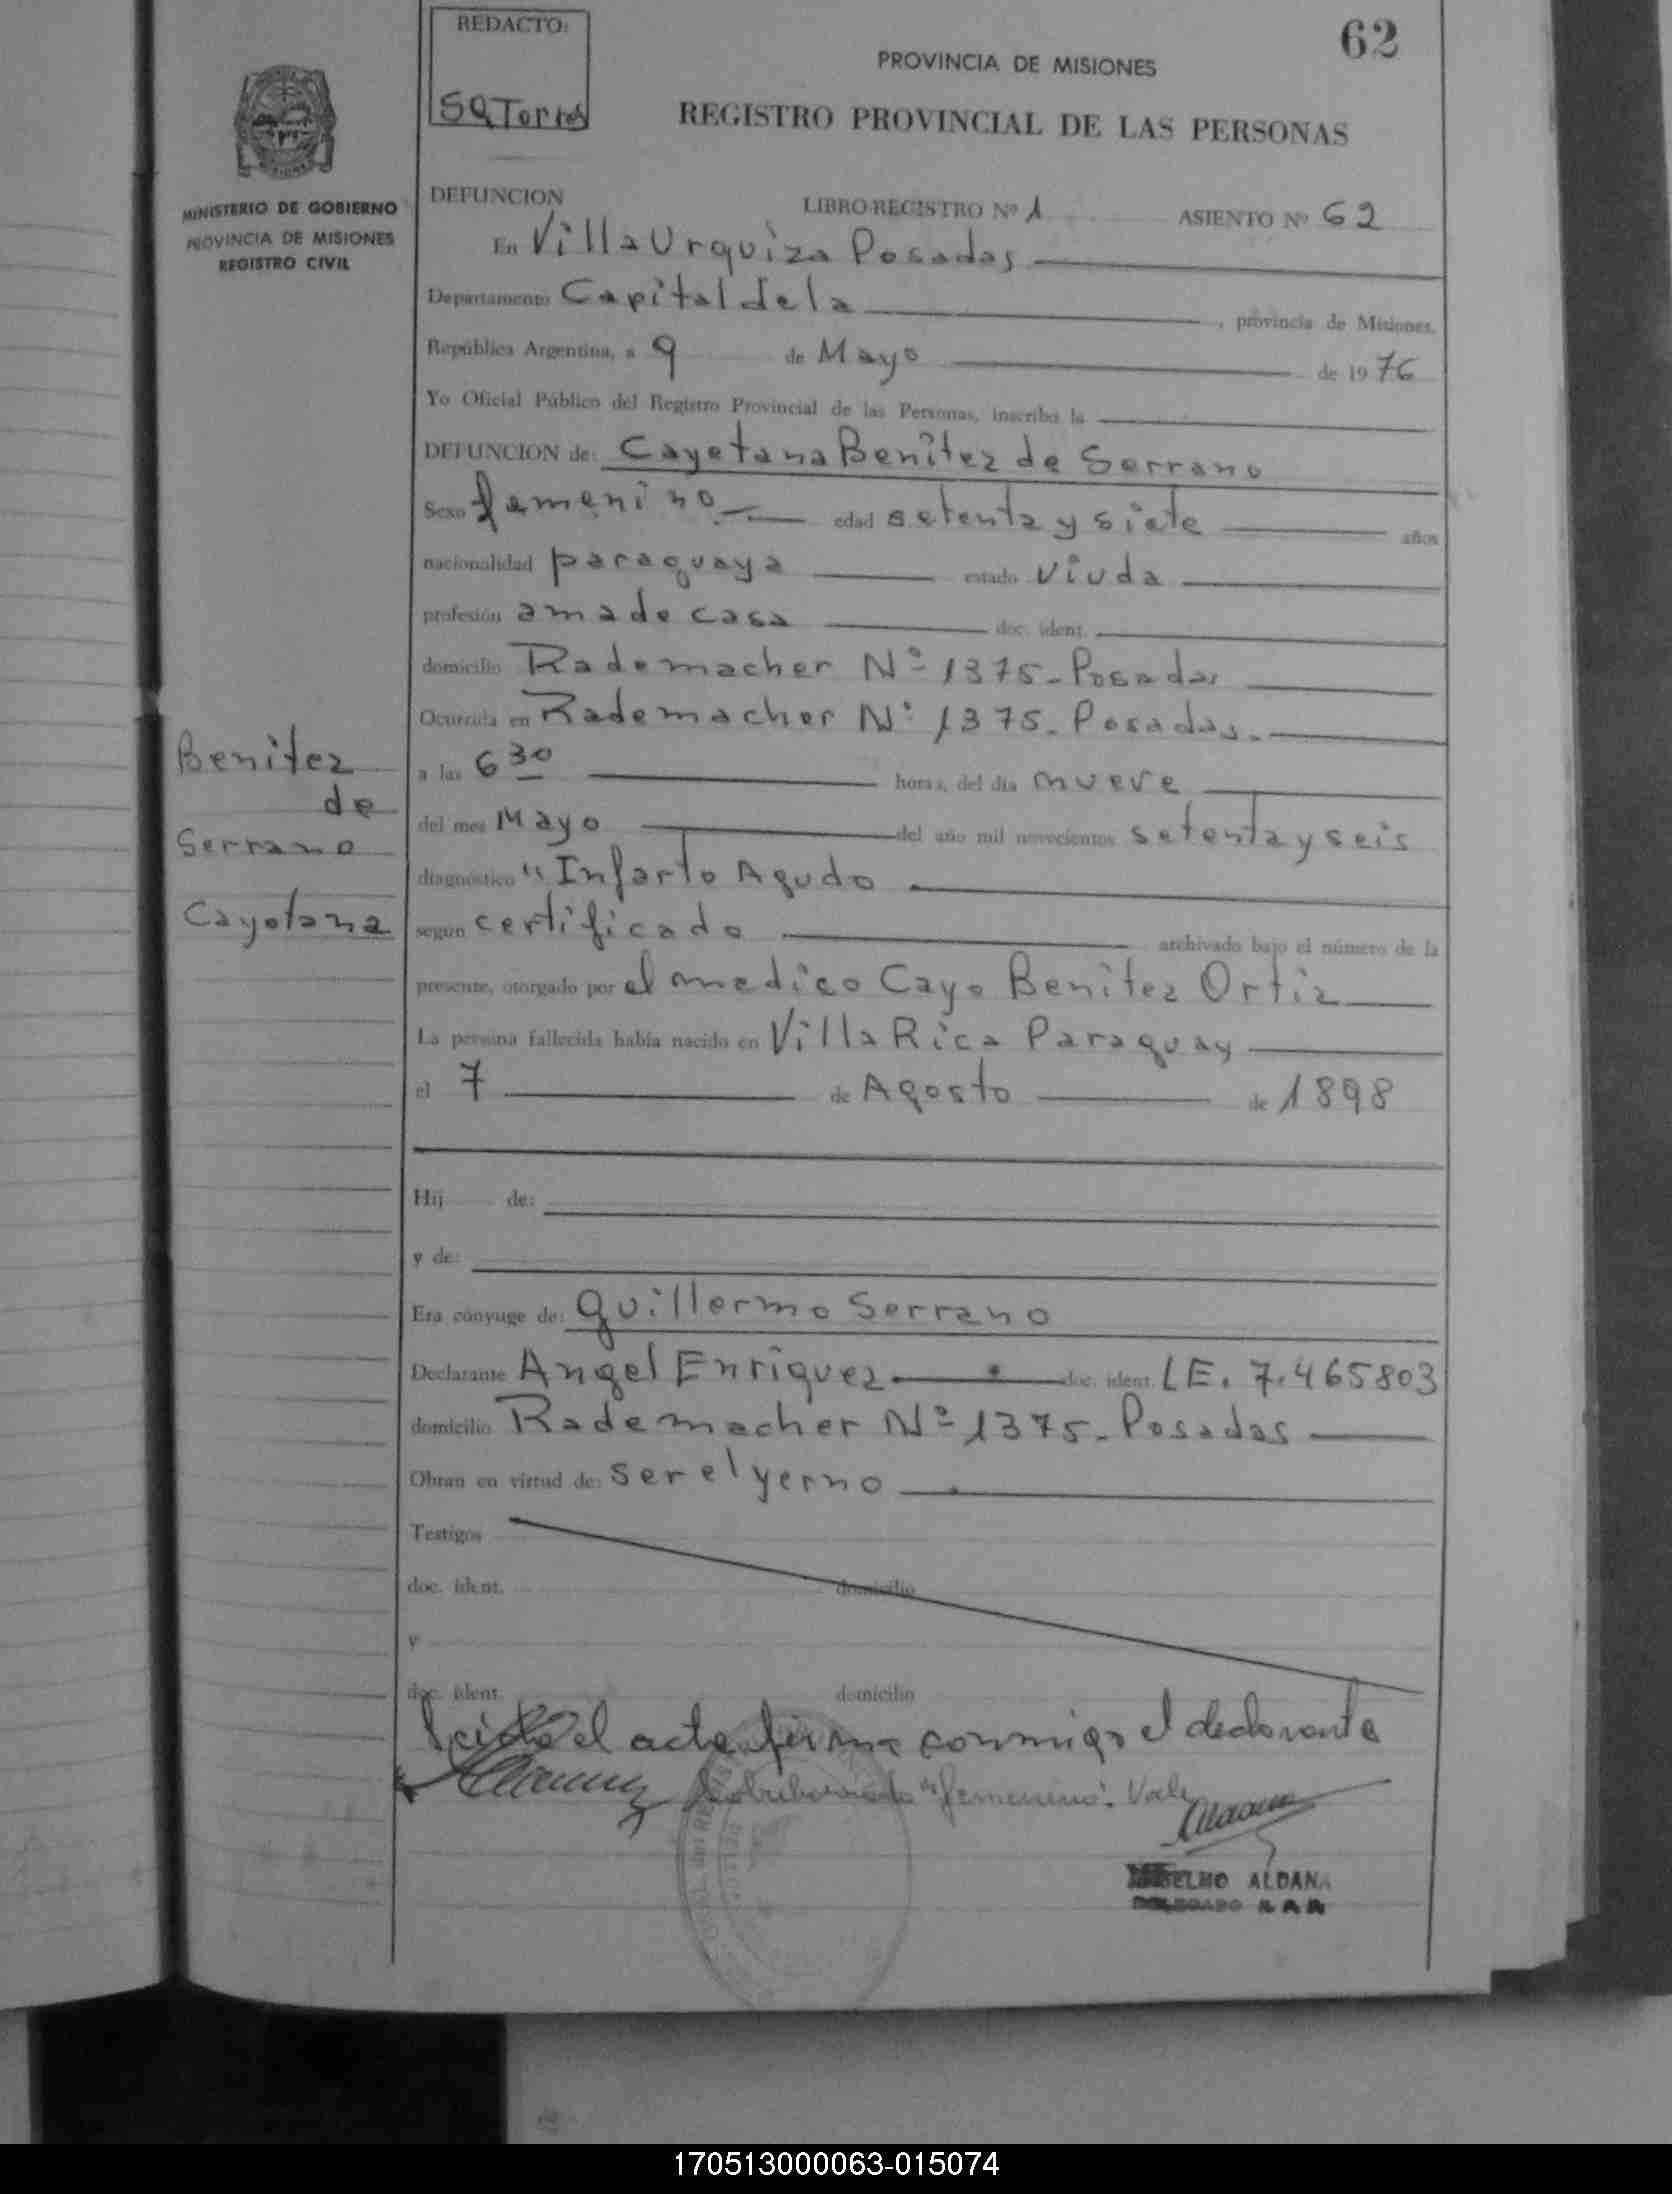 REDACTO:
SQTorres
62
PROVINCIA DE MISIONES
REGISTRO PROVINCIAL DE LAS PERSONAS
MINISTERIO DE GOBIERNO
PROVINCIA DE MISIONES
REGISTRO CIVIL
DEFUNCION LIBRO-REGISTRO Nº 1 ASIENTO Nº 62
En Villa Urquiza Posadas
Departamento Capital de la , provincia de Misiones.
República Argentina, a 9 de Mayo de 1976
Yo Oficial Público del Registro Provincial de las Personas, inscribo la
DEFUNCION de: Cayetana Benitez de Serrano
Sexo femenino edad setenta y siete años
nacionalidad paraguaya estado viuda
profesión ama de casa doc. ident.
domicilio Rademacher Nº 1375 - Posadas
Ocurrida en Rademacher Nº 1375 - Posadas.
a las 6 30 horas, del día nueve
del mes Mayo del año mil novecientos setenta y seis
diagnóstico "Infarto Agudo
según certificado archivado bajo el número de la
presente, otorgado por el medico Cayo Benitez Ortiz
La persona fallecida había nacido en Villa Rica Paraguay
el 7 de Agosto de 1898
Benitez
de
Serrano
Cayetana
Hij de:
y de:
Era cónyuge de: Guillermo Serrano
Declarante Angel Enriquez doc. ident. LE. 7.465803
domicilio Rademacher Nº 1375 - Posadas
Obran en virtud de: ser el yerno
Testigos
doc. ident. domicilio
y
doc. ident. domicilio
Leida el acta firma conmigo el declarante
Sobreborrado "femenino". Vale
ANSELMO ALDANA
DELEGADO
170513000063-015074